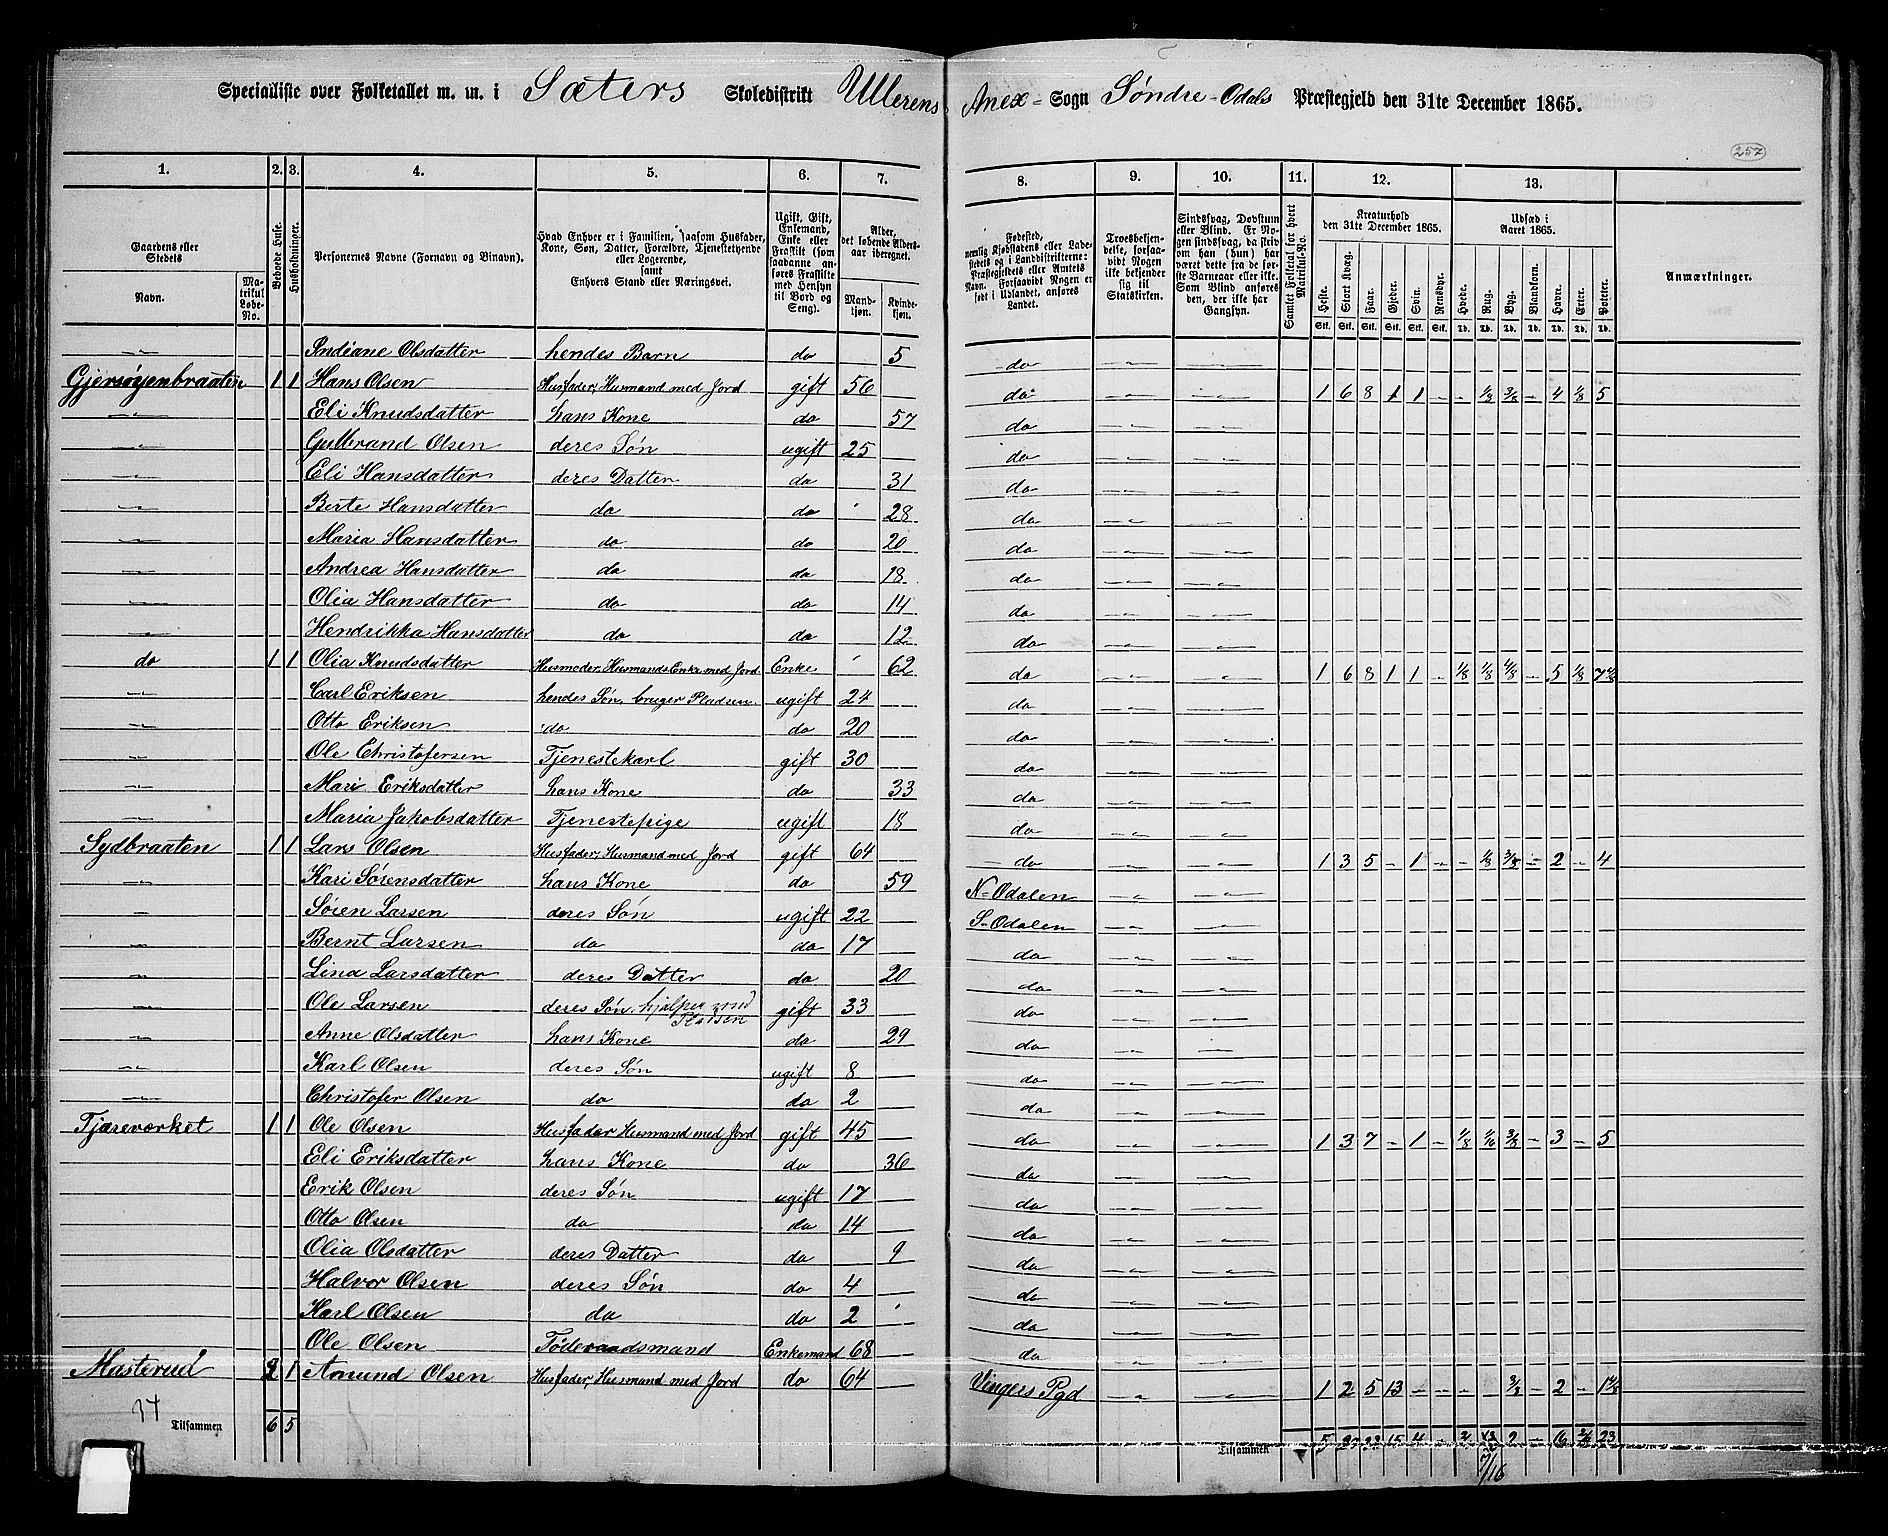 Specialliste over Folketallet m. m. i Sæters Skoledistrikt Ullerens Anex-Sogn Søndre-Odals Præstegjeld den 31te December 1865.
257
1. 2. 3. 4. 5. 6. 7. 8. 9. 10. 11. 12. 13.
Gaardens eller Stedets
Navn.
Matrikul Løbe-No.
Beboede Huse.
Husholdninger.
Personernes Navne (Fornavn og Binavn).
Hvad Enhver er i Familien, saasom Husfader, Kone, Søn, Datter, Forældre, Tjenestetyende eller Logerende, samt Enhvers Stand eller Næringsvei.
Ugift, Gift, Enkemand, Enke eller Fraskilt (som saadanne anføres Fraskilte med Hensyn til Bord og Seng).
Alder, det løbende Aldersaar iberegnet.
Mandkjøn. Kvindekjøn.
Fødested, nemlig Kjøbstadens eller Ladestedets eller i Landdistrikterne: Præstegjeldets eller Amtets Navn. Forsaavidt Nogen er født i Udlandet, anføres Landet.
Troesbekjendelse, forsaavidt Nogen ikke bekjender sig til Statskirken.
Sindssvag, Døvstum eller Blind. Er Nogen sindssvag, da skrives om han (hun) har været dette fra de første Barneaar eller ikke. Som Blind anføres den, der ikke har Gangsyn.
Samlet Folketal for hvert Matrikul-No.
Kreaturhold den 31te December 1865.
Heste. Stort Kvæg. Faar. Gjeder. Svin. Rensdyr.
Udsæd i Aaret 1865.
Hvede. Rug. Byg. Blandkorn. Havre. Erter. Poteter.
Stk. Stk. Stk. Stk. Stk. Stk. Td. Td. Td. Td. Td. Td. Td.
Anmærkninger.
— Indiane Olsdatter hendes Barn do 5 do — —
Gjersøyenbraaten 1 1 Hans Olsen Husfader, Husmand med Jord gift 56 do — — 1 6 8 1 1 - - 1/8 3/8 - 4 1/8 5
— Eli Knudsdatter hans Kone do 57 do — —
— Gulbrand Olsen deres Søn ugift 25 do — —
— Eli Hansdatter deres Datter do 31 do — —
— Berte Hansdatter do do 28 do — —
— Maria Hansdatter do do 20 do — —
— Andrea Hansdatter do do 18 do — —
— Olia Hansdatter do do 14 do — —
— Hendrikka Hansdatter do do 12 do — —
do 1 1 Olia Knudsdatter Husmoder, Husmands Enke med Jord Enke 62 do — — 1 6 8 1 1 - 1/8 1/8 4/8 - 5 1/8
— Carl Eriksen hendes Søn, bruger Pladsen ugift 24 do — —
— Otto Eriksen do do 20 do — —
— Ole Christofersen Tjenestekarl gift 30 do — —
— Mari Eriksdatter hans Kone do 33 do — —
— Maria Jakobsdatter Tjenestepige ugift 18 do — —
Sydbraaten 1 1 Lars Olsen Husfader, Husmand med Jord gift 64 do — — 1 3 5 - 1 - - 1/8 3/8 - 2 - 4
— Kari Sørensdatter hans Kone do 59 N-Odalen — —
— Søren Larsen deres Søn ugift 22 S-Odalen — —
— Bernt Larsen do do 17 do — —
— Lina Larsdatter deres Datter do 20 do — —
— Ole Larsen deres Søn, hjælper med Pladsen gift 33 do — —
— Anne Olsdatter hans Kone do 29 do — —
— Karl Olsen deres Søn ugift 8 do — —
— Christofer Olsen do do 2 do — —
Tjæreværket 1 1 Ole Olsen Husfader Husmand med Jord gift 45 do — — 1 3 7 - 1 - 1/8 1/6 3/8 - 3 - 5
Eli Eriksdatter hans Kone do 36 do — —
Erik Olsen deres Søn ugift 17 do — —
Otto Olsen do do 14 do — —
Olia Olsdatter deres Datter do 9 do — —
Halvor Olsen deres Søn do 4 do — —
Karl Olsen do do 2 do — —
Ole Olsen Føderaadsmand Enkemand 68 do — —
Masterud 2 1 Amund Olsen Husfader, Husmand med Jord do 64 Vingers Pgd — — 1 2 5 13 - - - 3/8 - 2 -
Tilsammen 6 5 Tilsammen 5 15 4 - 2 - 16 23